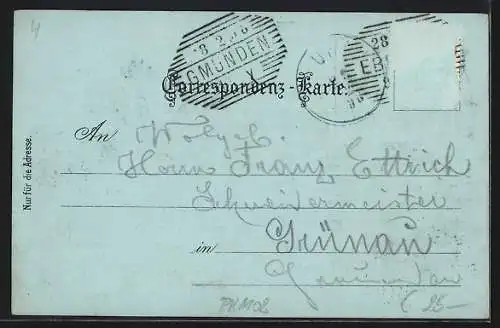 4
28 2 98
GMUNDEN
28
EB
Correspondenz-Karte.
Nur für die Adresse.
An Wolgeb.
Herrn Franz Ettrich
Schneidermeister
in Grünau
PKM02
25–